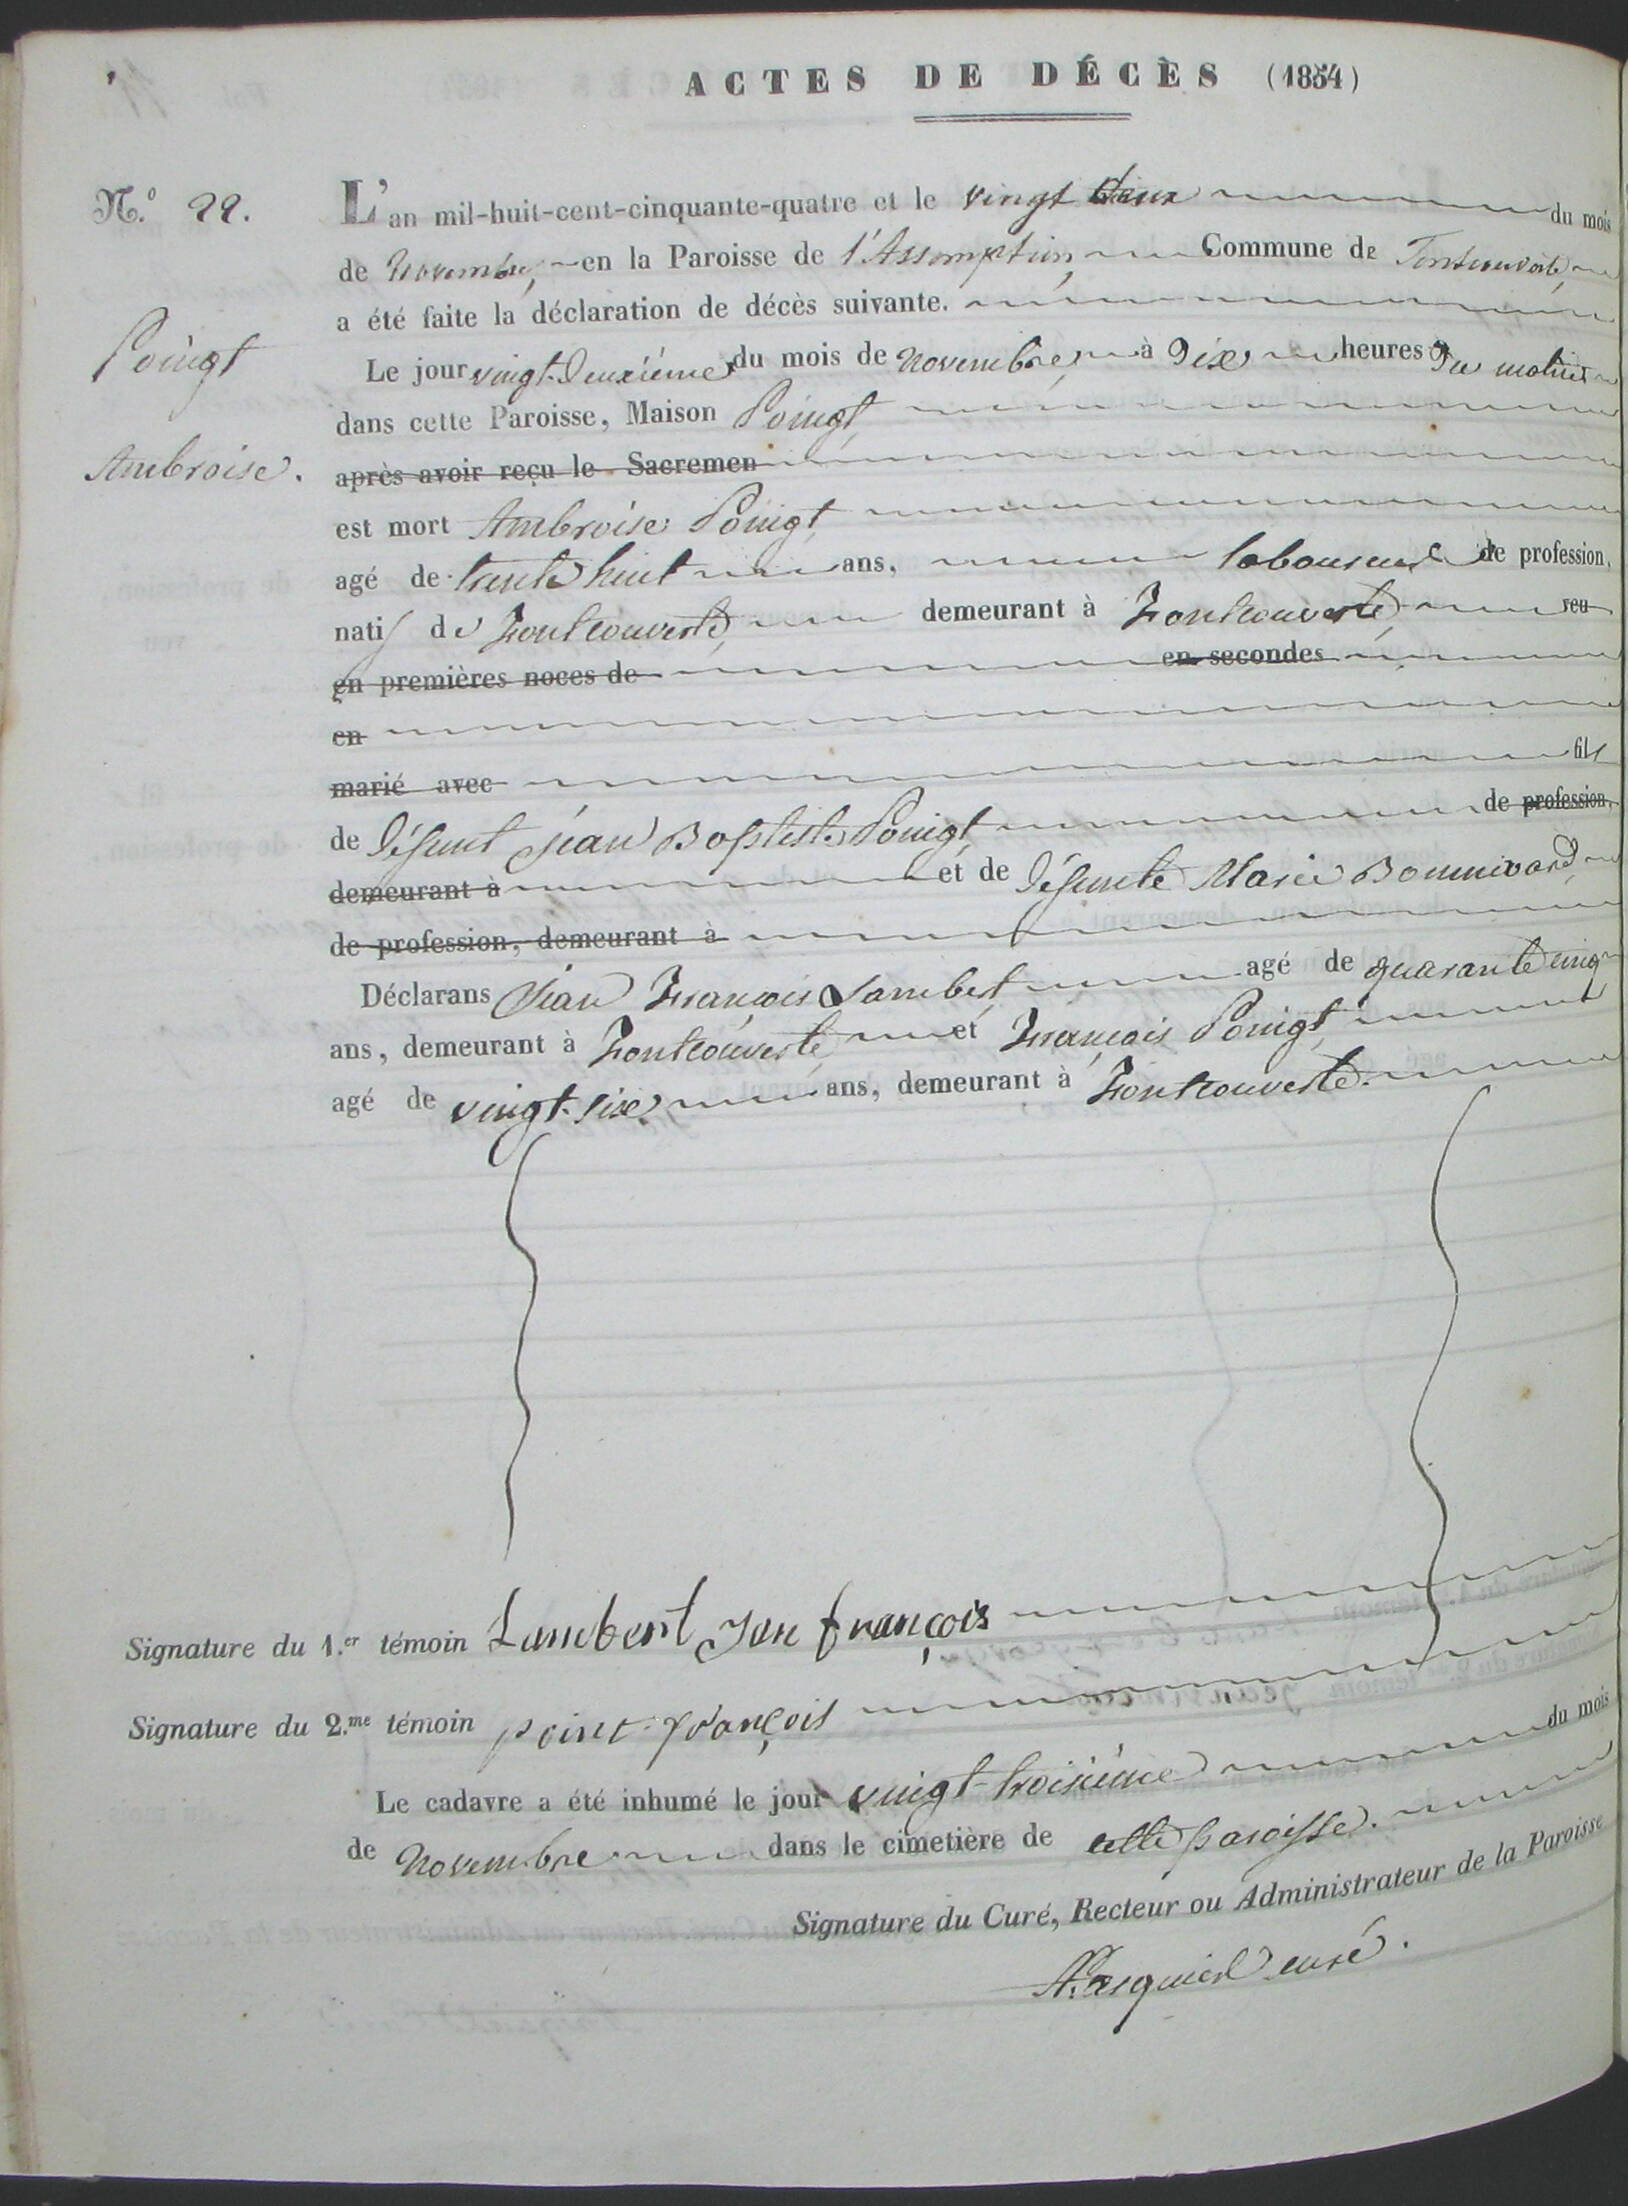 ACTES DE DÉCÈS (1854)
N.o 22. L'an mil-huit-cent-cinquante-quatre et le vingt deux du mois
de Novembre, en la Paroisse de l'Assomption, Commune de Fontcouverte,
a été faite la déclaration de décès suivante.
Poingt
Le jour vingt-deuxième du mois de novembre, à dix heures du matin
dans cette Paroisse, Maison Poingt,
Ambroise.
après avoir reçu le Sacremen
est mort Ambroise Poingt,
agé de trente huit ans, laboureur de profession,
natif de Fontcouverte, demeurant à Fontcouverte, veu
en premières noces de en secondes
en
marié avec fils
de défunt Jean Baptiste Poingt, de profession,
demeurant à et de défunte Marie Bonnivard,
de profession, demeurant à
Déclarans Jean François Lambert, agé de quarante cinq
ans, demeurant à Fontcouverte, et François Poingt,
agé de vingt-six ans, demeurant à Fontcouverte.
Signature du 1.er témoin Lambert Jan françois
Signature du 2.me témoin point françois
Le cadavre a été inhumé le jour vingt-troisième du mois
de Novembre dans le cimetière de cette paroisse.
Signature du Curé, Recteur ou Administrateur de la Paroisse
curé.